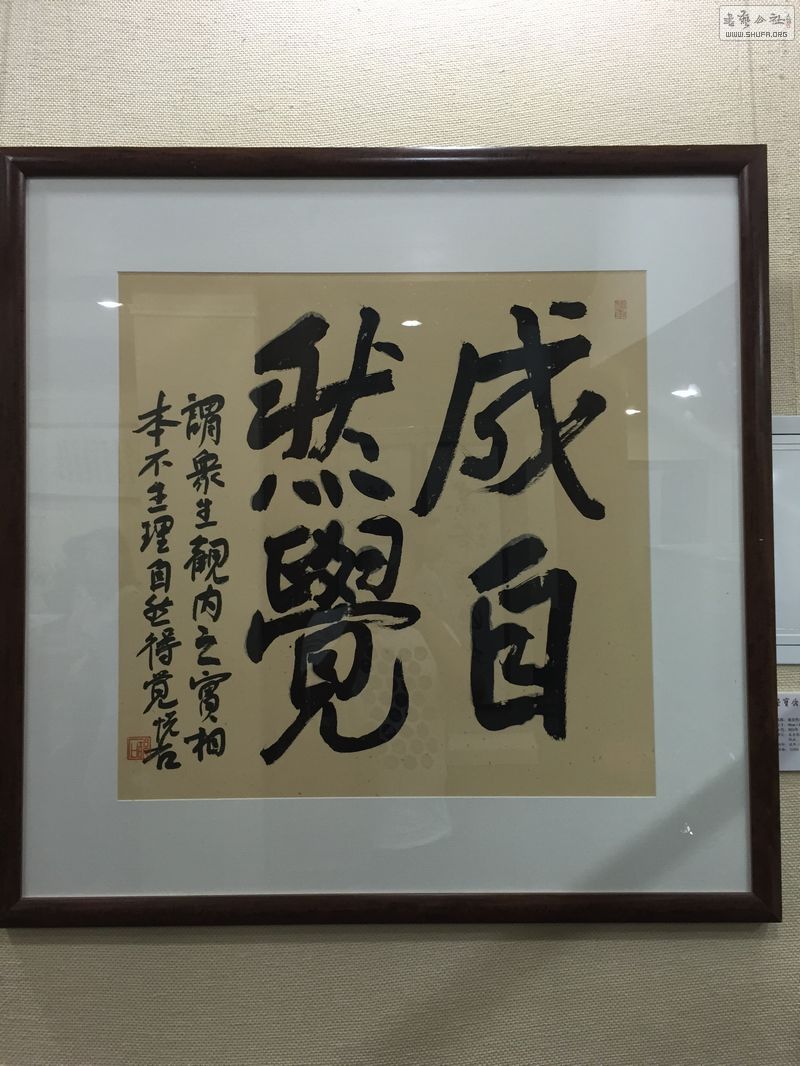 成自
然覺
謂衆生觀内之實相
本不生理自然得覺悅石
書藝公社
WWW.SHUFA.ORG